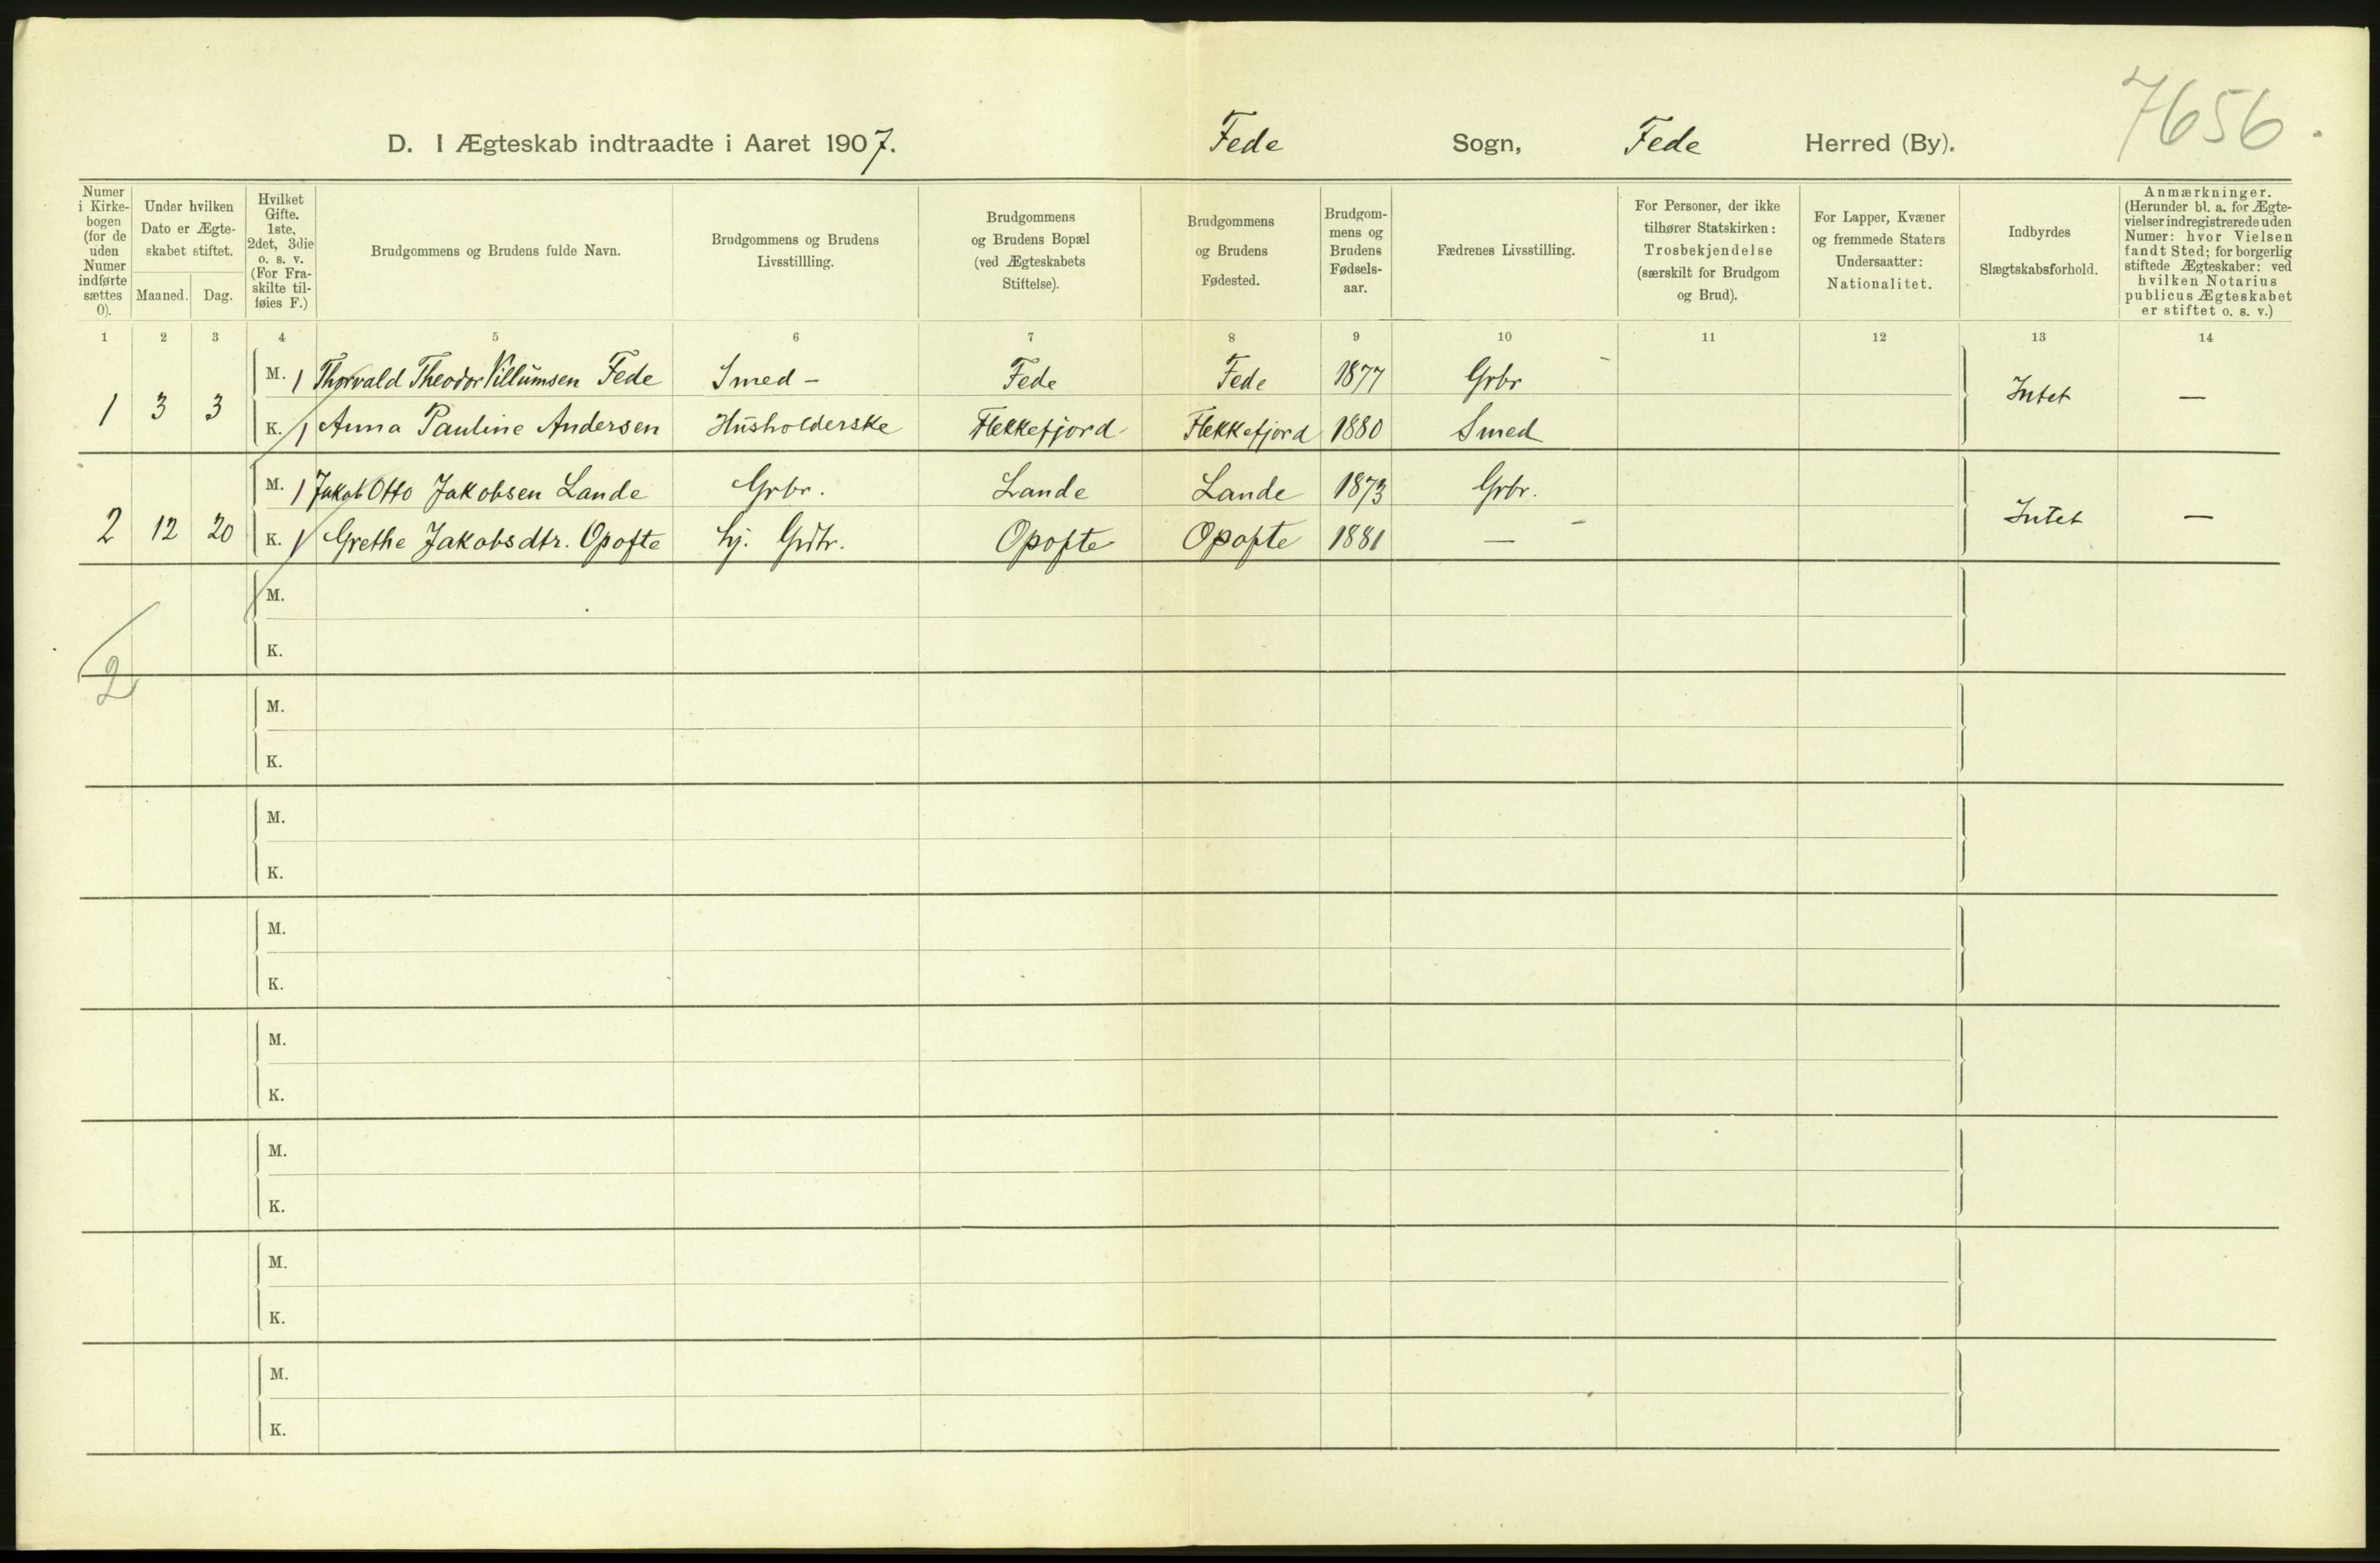 7656.
D. I Ægteskab indtraadte i Aaret 1907. Fede Sogn, Fede Herred (By).
Numer i Kirkebogen (for de uden Numer indførte sættes 0).
Under hvilken Dato er Ægteskabet stiftet.
Maaned. Dag.
Hvilket Gifte. 1ste, 2det, 3die o. s. v. (For Fraskilte tilføies F.)
Brudgommens og Brudens fulde Navn.
Brudgommens og Brudens Livsstillling.
Brudgommens og Brudens Bopæl (ved Ægteskabets Stiftelse).
Brudgommens og Brudens Fødested.
Brudgommens og Brudens Fødselsaar.
Fædrenes Livsstilling.
For Personer, der ikke tilhører Statskirken: Trosbekjendelse (særskilt for Brudgom og Brud).
For Lapper, Kvæner og fremmede Staters Undersaatter: Nationalitet.
Indbyrdes Slægtskabsforhold.
Anmærkninger. (Herunder bl. a. for Ægtevielser indregistrerede uden Numer: hvor Vielsen fandt Sted; for borgerlig stiftede Ægteskaber: ved hvilken Notarius publicus Ægteskabet er stiftet o. s. v.)
1 2 3 4 5 6 7 8 9 10 11 12 13 14
M. 1 Thorvald Theodor Villumsen Fede Smed – Fede Fede 1877 Grbr –
1 3 3 Intet —
K. 1 Anna Pauline Andersen Husholderske Flekkefjord Flekkefjord 1880 Smed
M. 1 Jakob Otto Jakobsen Lande Grbr. Lande Lande 1873 Grbr.
2 12 20 Intet —
K. 1 Grethe Jakobsdtr. Opofte hj. Grdtr. Opofte Opofte 1881 —
M.
K.
2
M.
K.
M.
K.
M.
K.
M.
K.
M.
K.
M.
K.
M.
K.